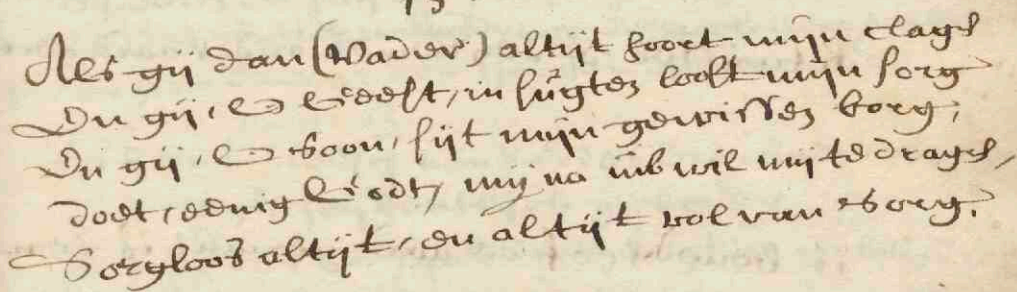 Als gij dan (Vader) altijt hoort mijn clagen
En gij, O Geest, in sugten looft mijn sorg
En gij, O Soon, sijt mijn gewissen borg;
doet, eenig Godt, mij na uw wil mij te dragen,
Sorgloos altijt, en altijt vol van sorg.